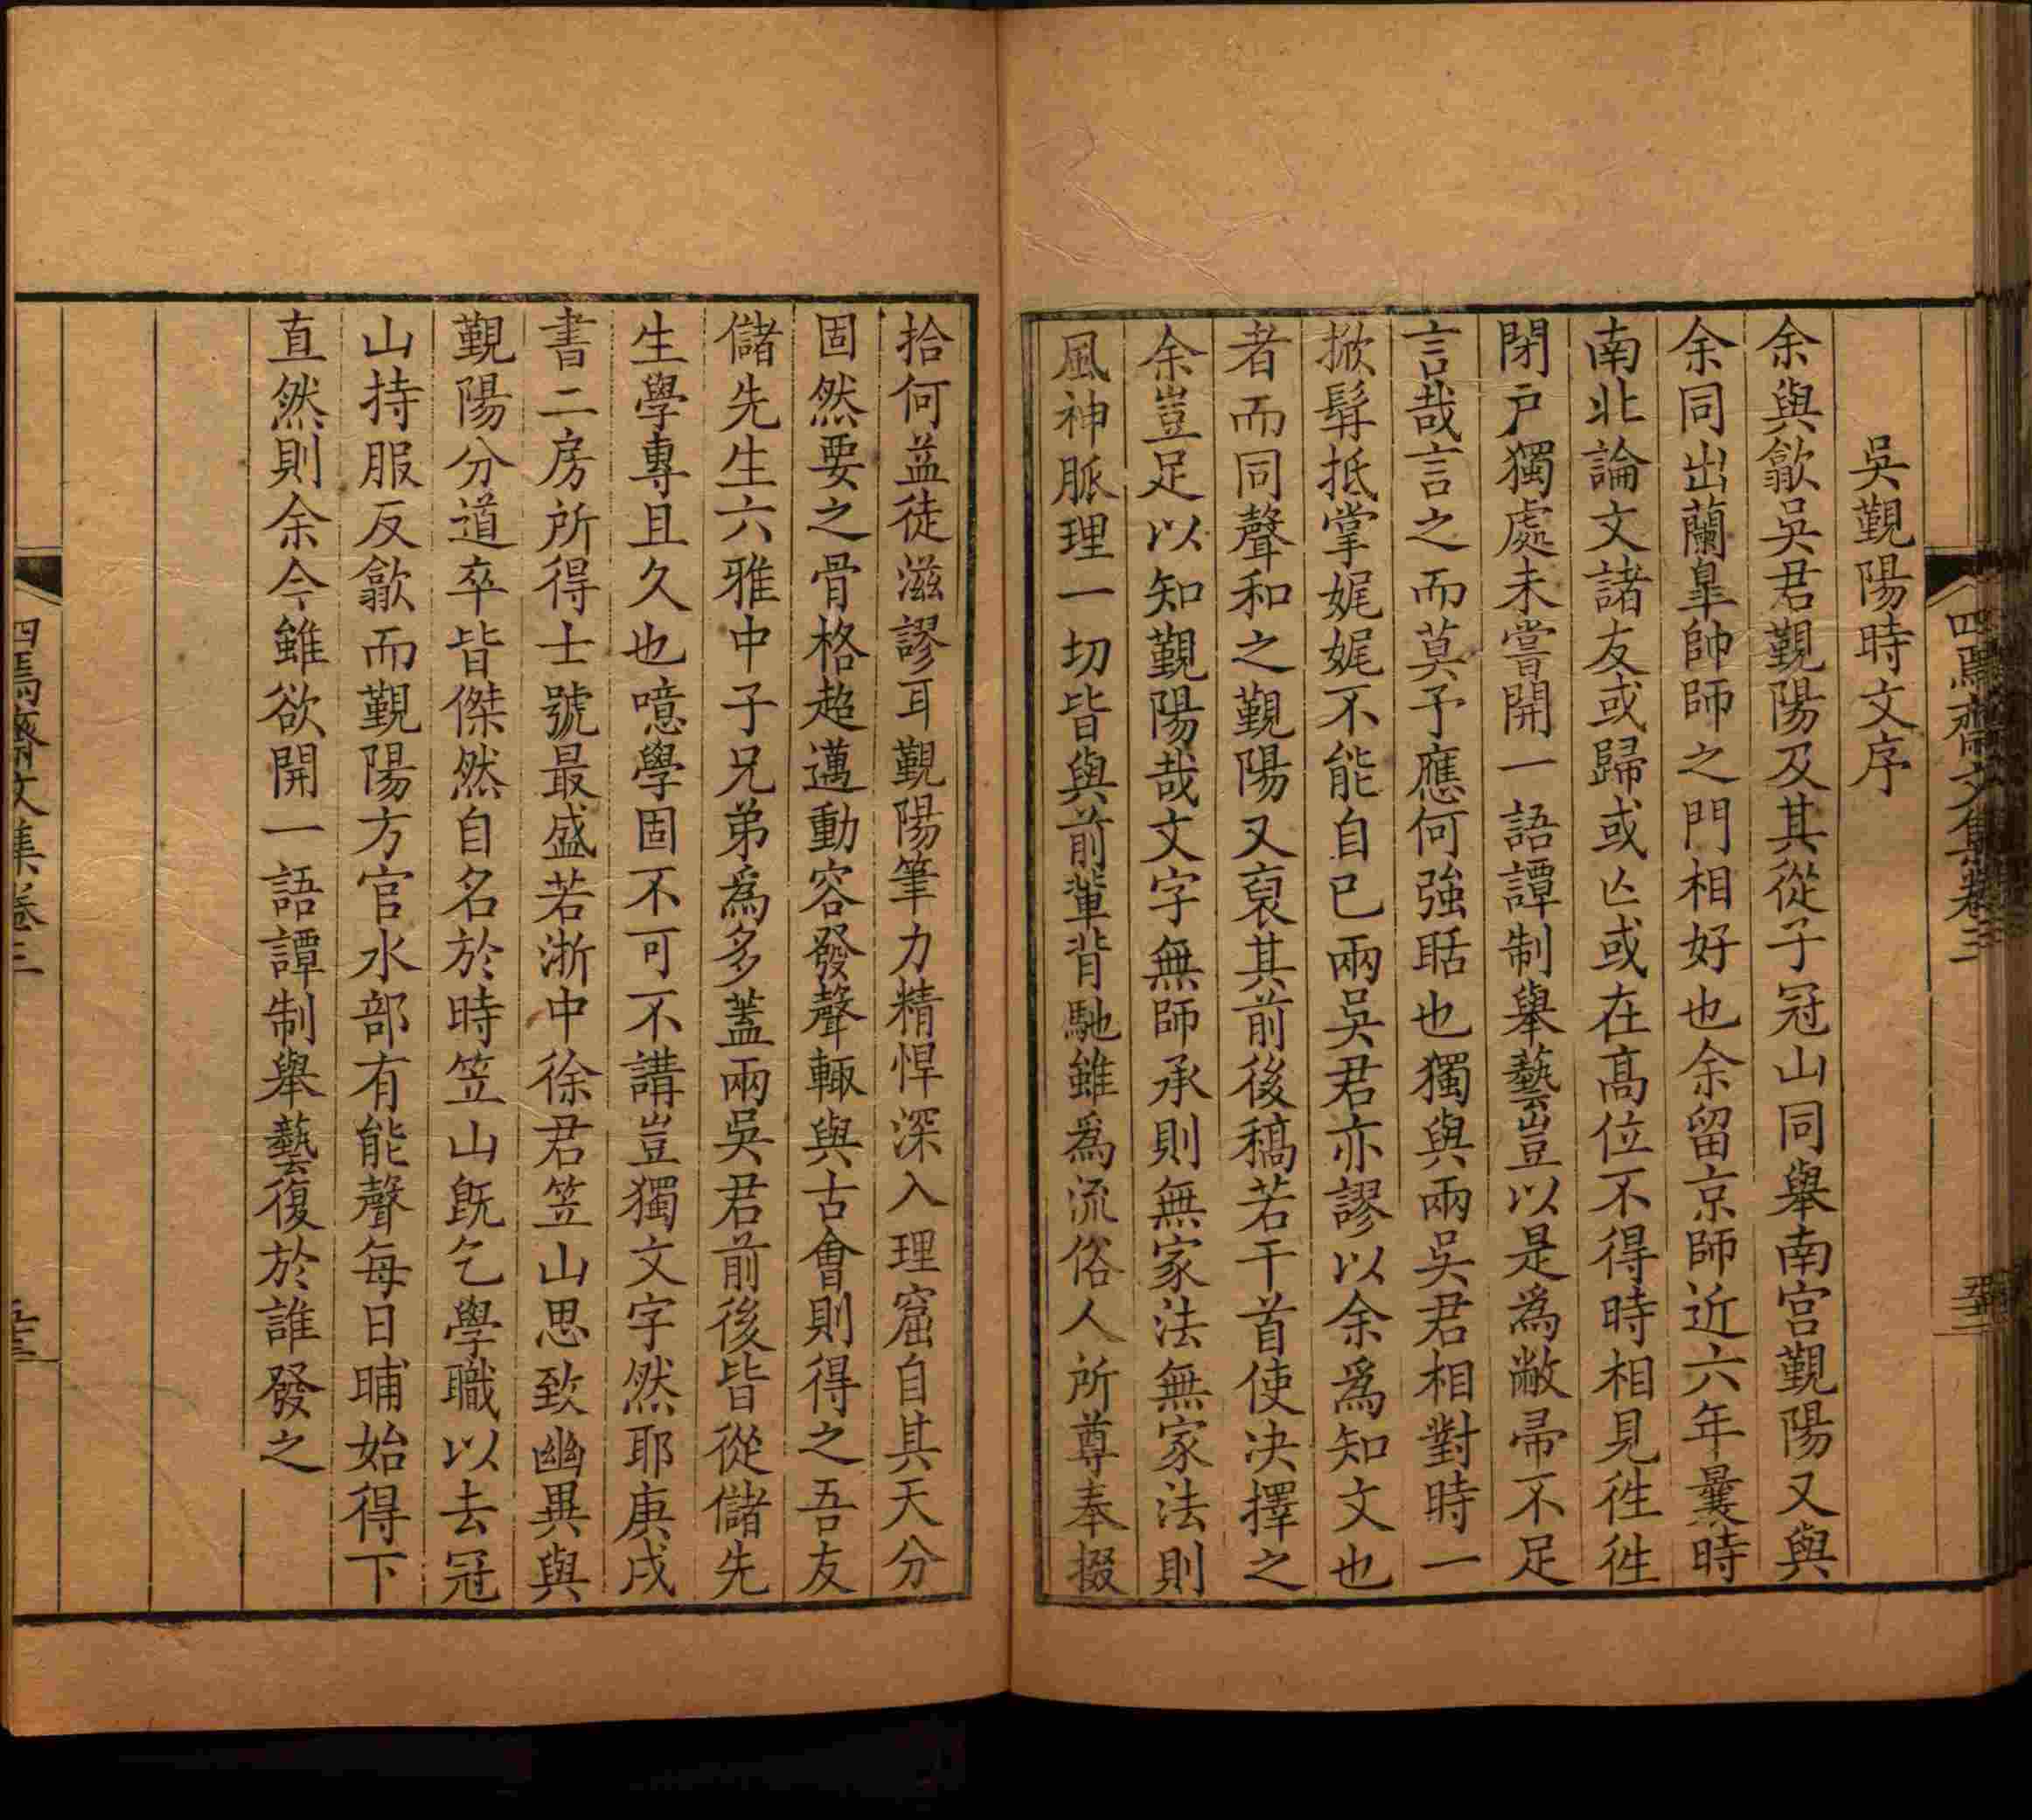 吳覲陽時文序
余與歙吳君覲陽及其從子冠山同舉南宮覲陽又與
余同出蘭臯帥師之門相好也余留京師近六年曩時
南北論文諸友或歸或亾或在高位不得時相見徃徃
閉戶獨處未嘗開一語譚制舉藝豈以是爲敝帚不足
言哉言之而莫予應何強聒也獨與兩吳君相對時一
掀髯抵掌娓娓不能自已兩吳君亦謬以余爲知文也
者而同聲和之覲陽又裒其前後稿若干首使决擇之
余豈足以知覲陽哉文字無師承則無家法無家法則
風神脈理一切皆與前輩背馳雖爲流俗人所尊奉掇
拾何益徒滋謬耳覲陽筆力精悍深入理窟自其天分
固然要之骨格超邁動容發聲輒與古會則得之吾友
儲先生六雅中子兄弟爲多蓋兩吳君前後皆從儲先
生學專且久也噫學固不可不講豈獨文字然耶庚戌
書二房所得士號最盛若浙中徐君笠山思致幽異與
覲陽分道卒皆傑然自名於時笠山旣乞學職以去冠
山持服反歙而覲陽方官水部有能聲每日晡始得下
直然則余今雖欲開一語譚制舉藝復於誰發之
四焉齋文集卷三